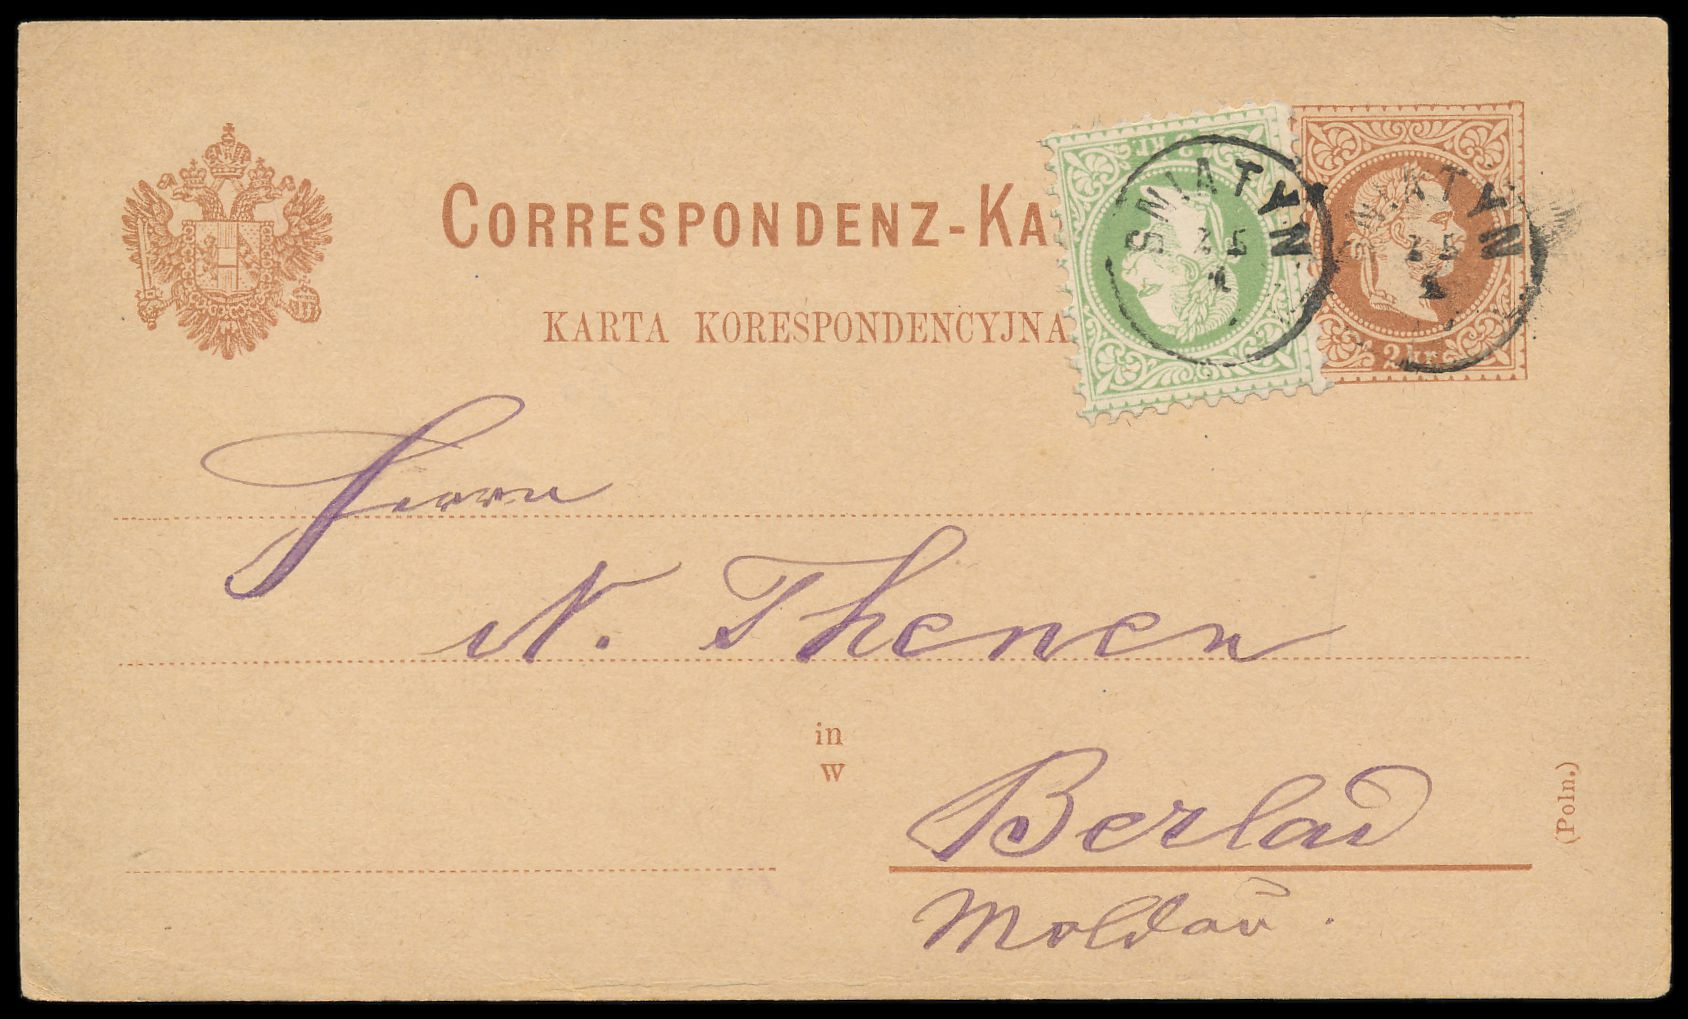 CORRESPONDENZ-KA
KARTA KORESPONDENCYJNA
3 kr.
2 kr.
SNIATYN
SNIATYN
Herrn
N. Thenen
in
W
Berlad
Moldau.
(Poln.)